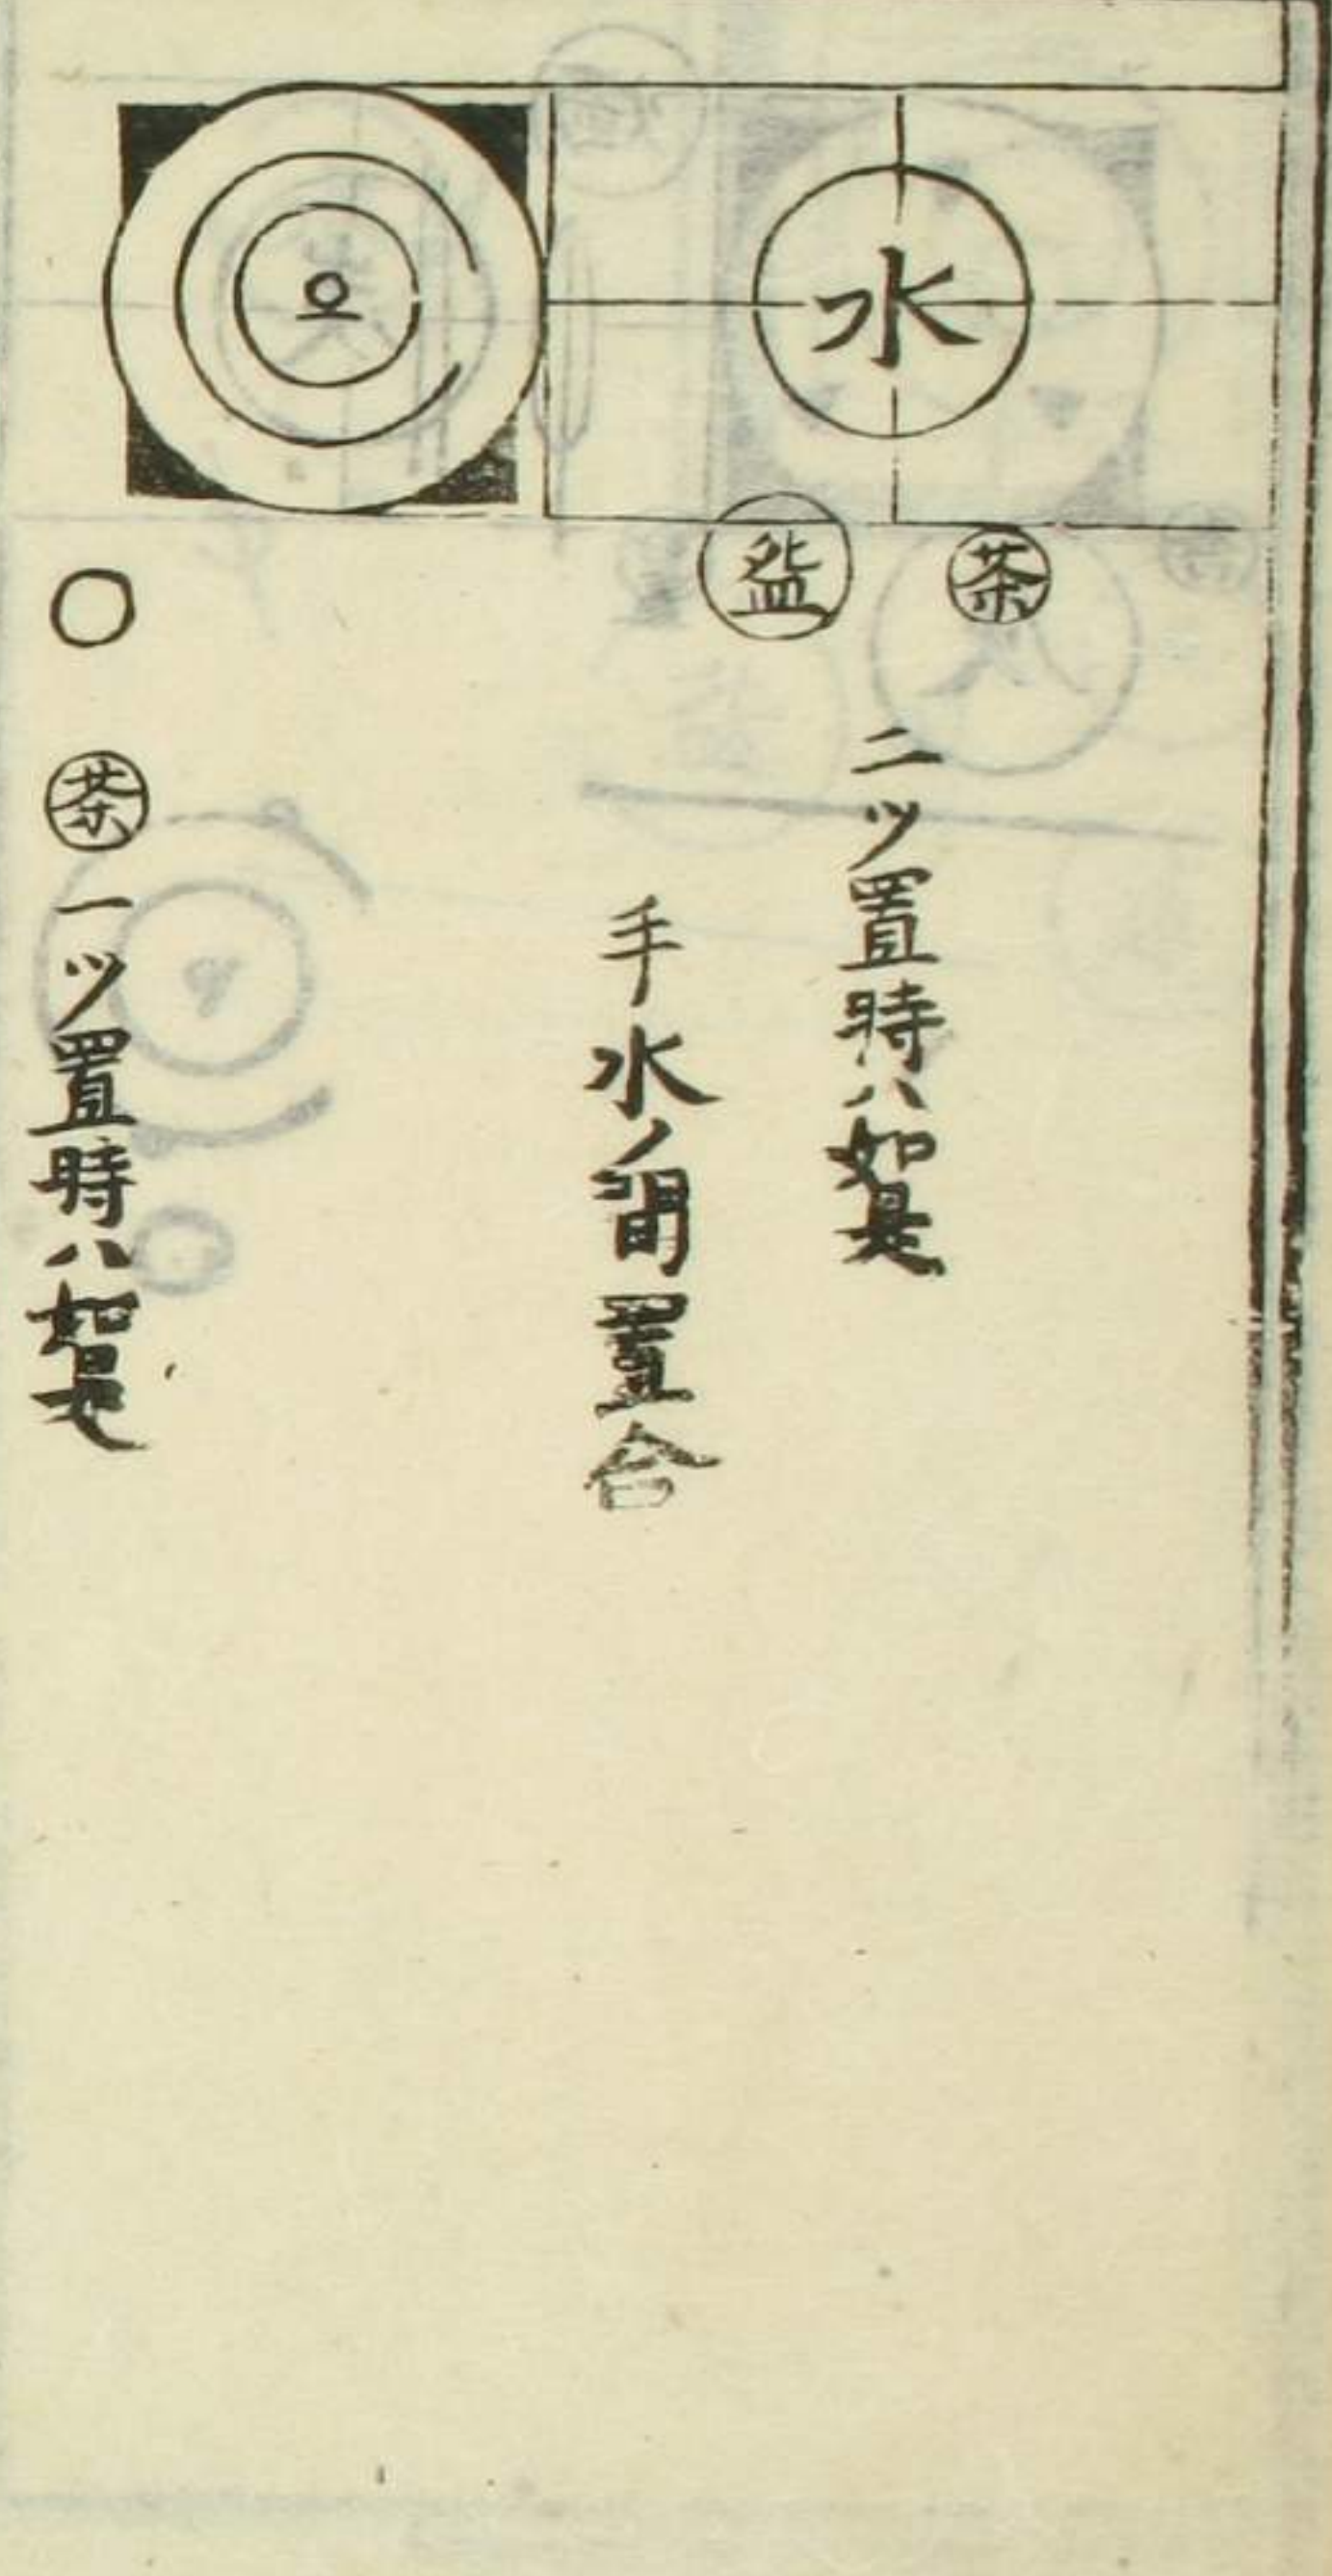 水
茶
盆
二ツ置時ハ如是
手水ノ間置合
茶
一ツ置時ハ如是